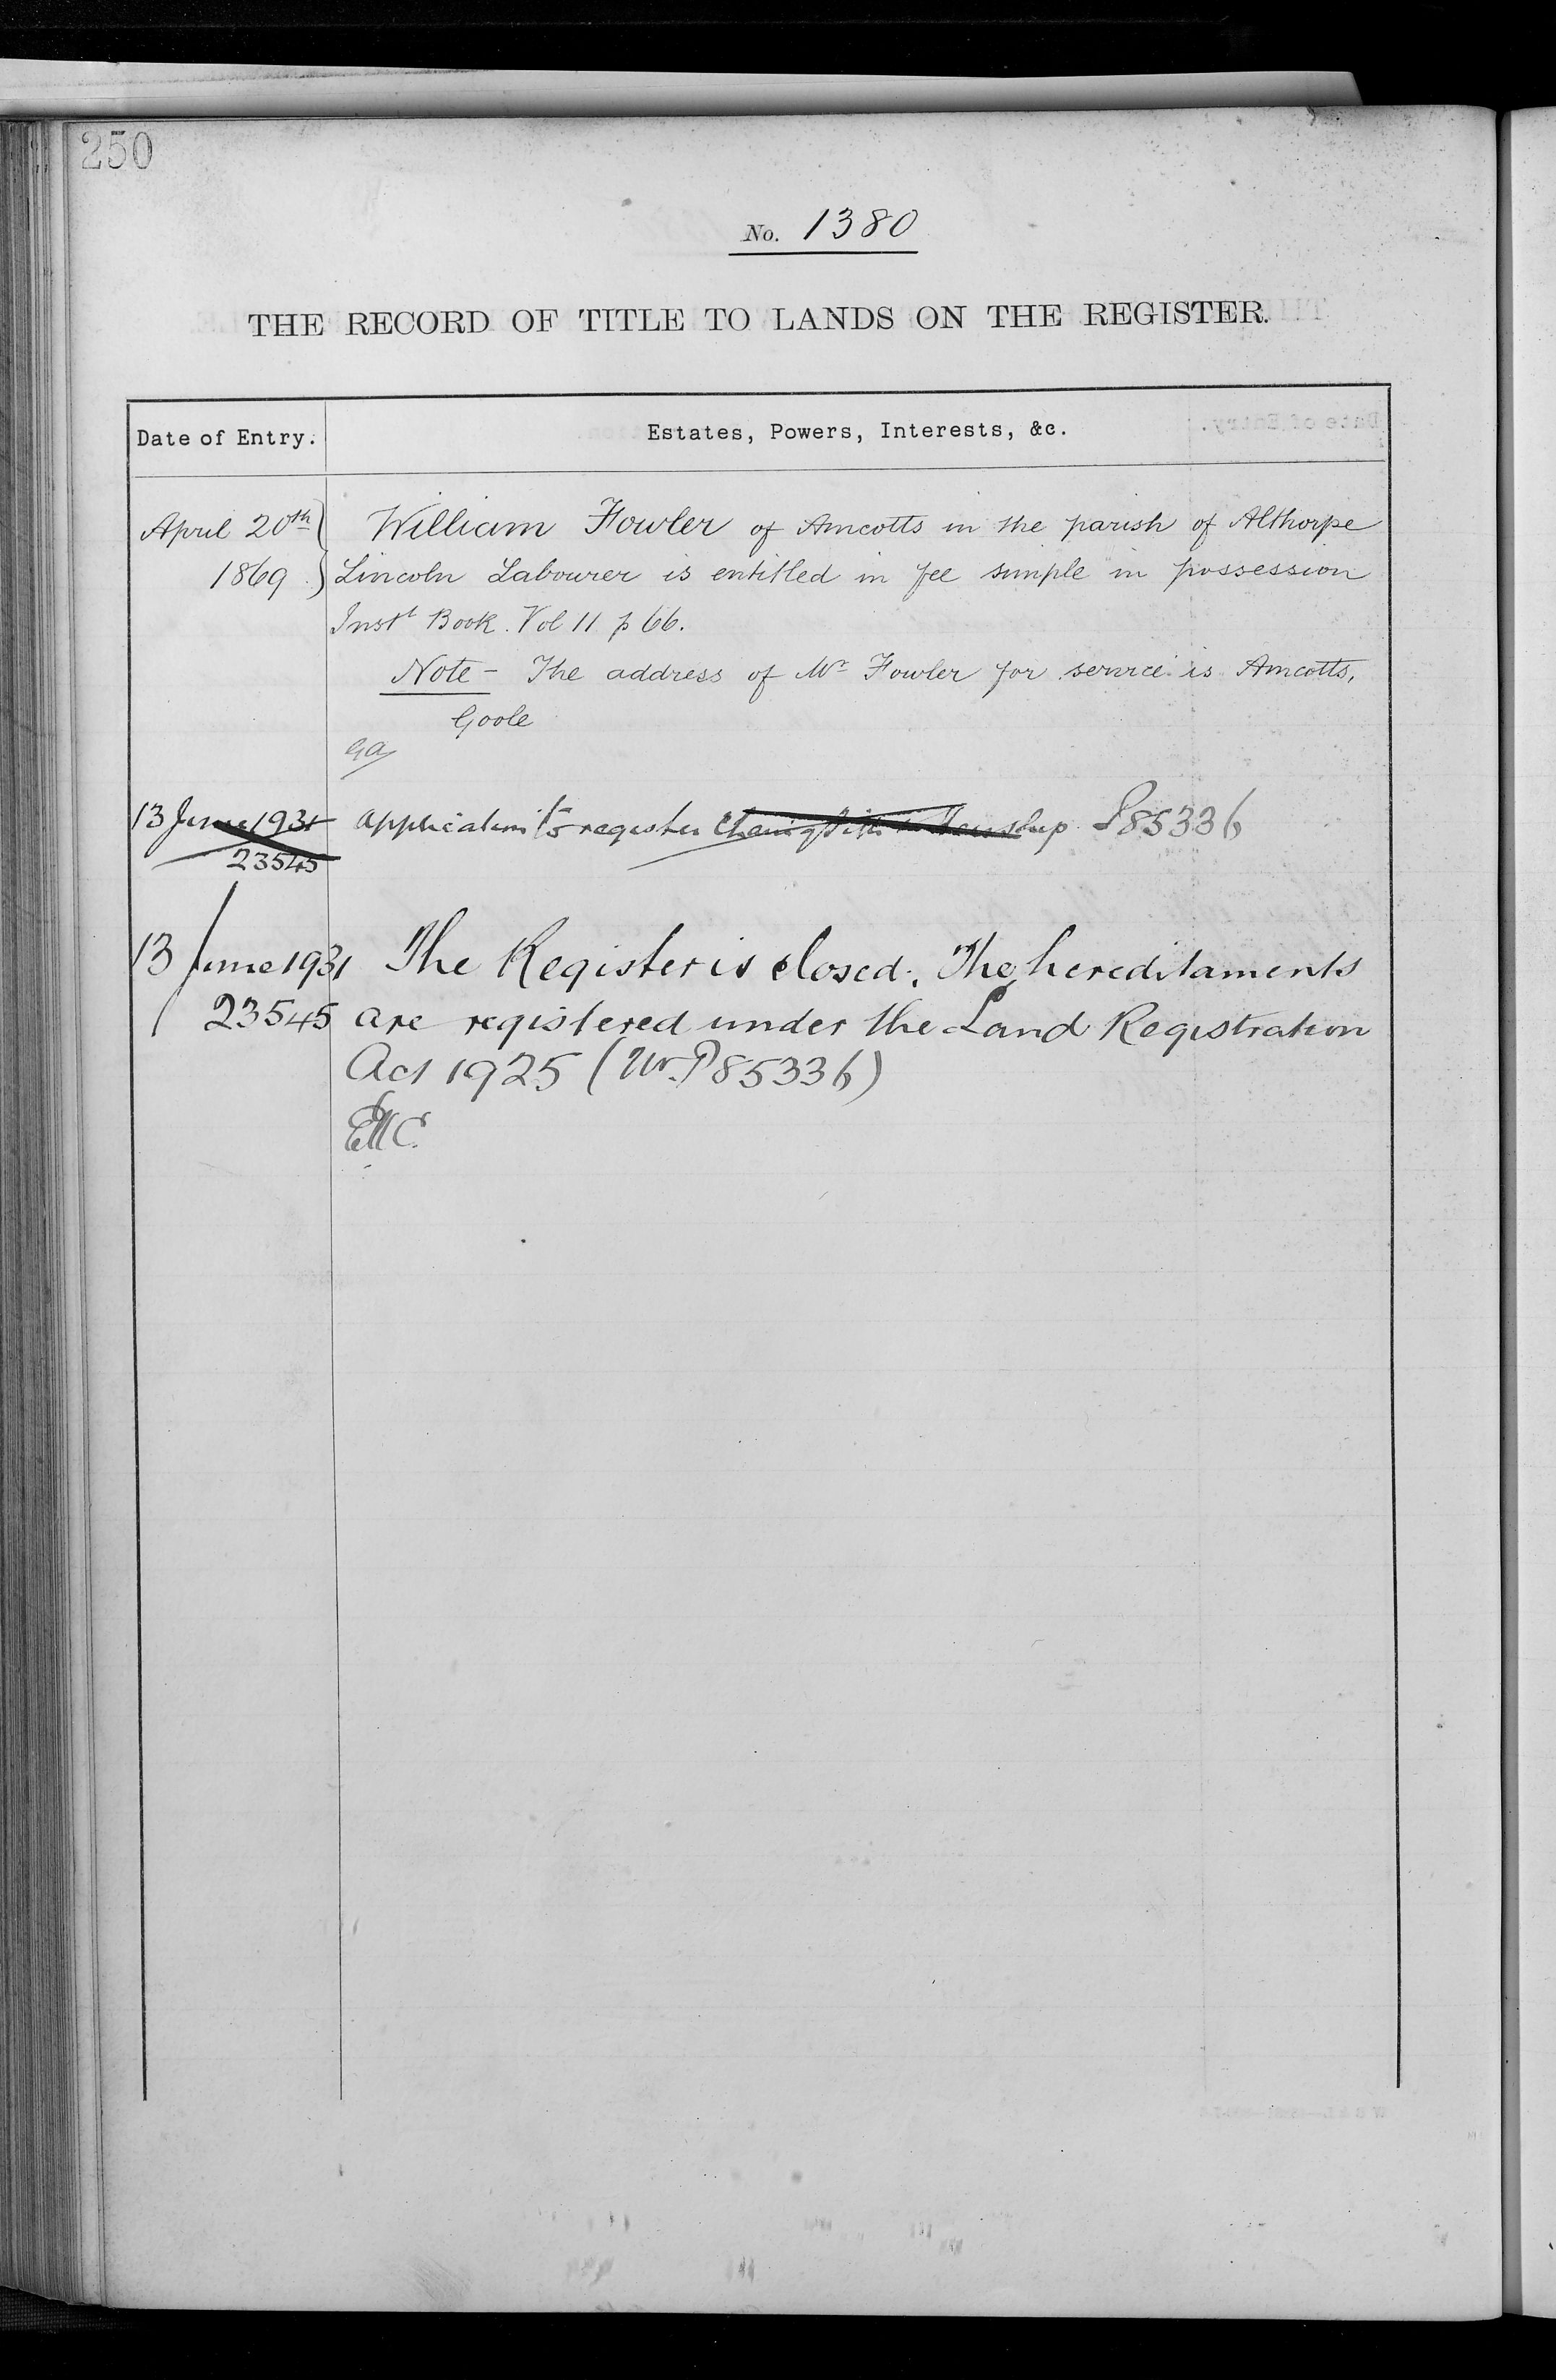 250
No. 1380
THE RECORD OF TITLE TO LANDS ON THE REGISTER.
Date of Entry. Estates, Powers, Interests, &c.
April 20th William Fowler of Amcotts in the parish of Althorpe
1869 Lincoln Labourer is entitled in fee simple in possession
Inst Book. Vol 11 p 66.
Note - The address of Mr Fowler for service is Amcotts,
Goole
GA
13 June 1931 application to register P85336
23545
13 June 1931 The Register is closed. The hereditaments
23545 are registered under the Land Registration
Act 1925 (P85336)